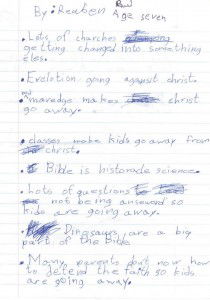 By: Reuben
Age seven
• Lots of charches
getting changed into something
eles.
• Evelotion going against christ.
• maredge makes christ
go away.
• classes make kids go away from
christ.
• Bible is historade science.
• Lots of questions
not being answerd so
kids are going away.
• Dinosaurs are a big
part of the Bible
• Many parents dont now how
to defend the faith so kids
are going away.